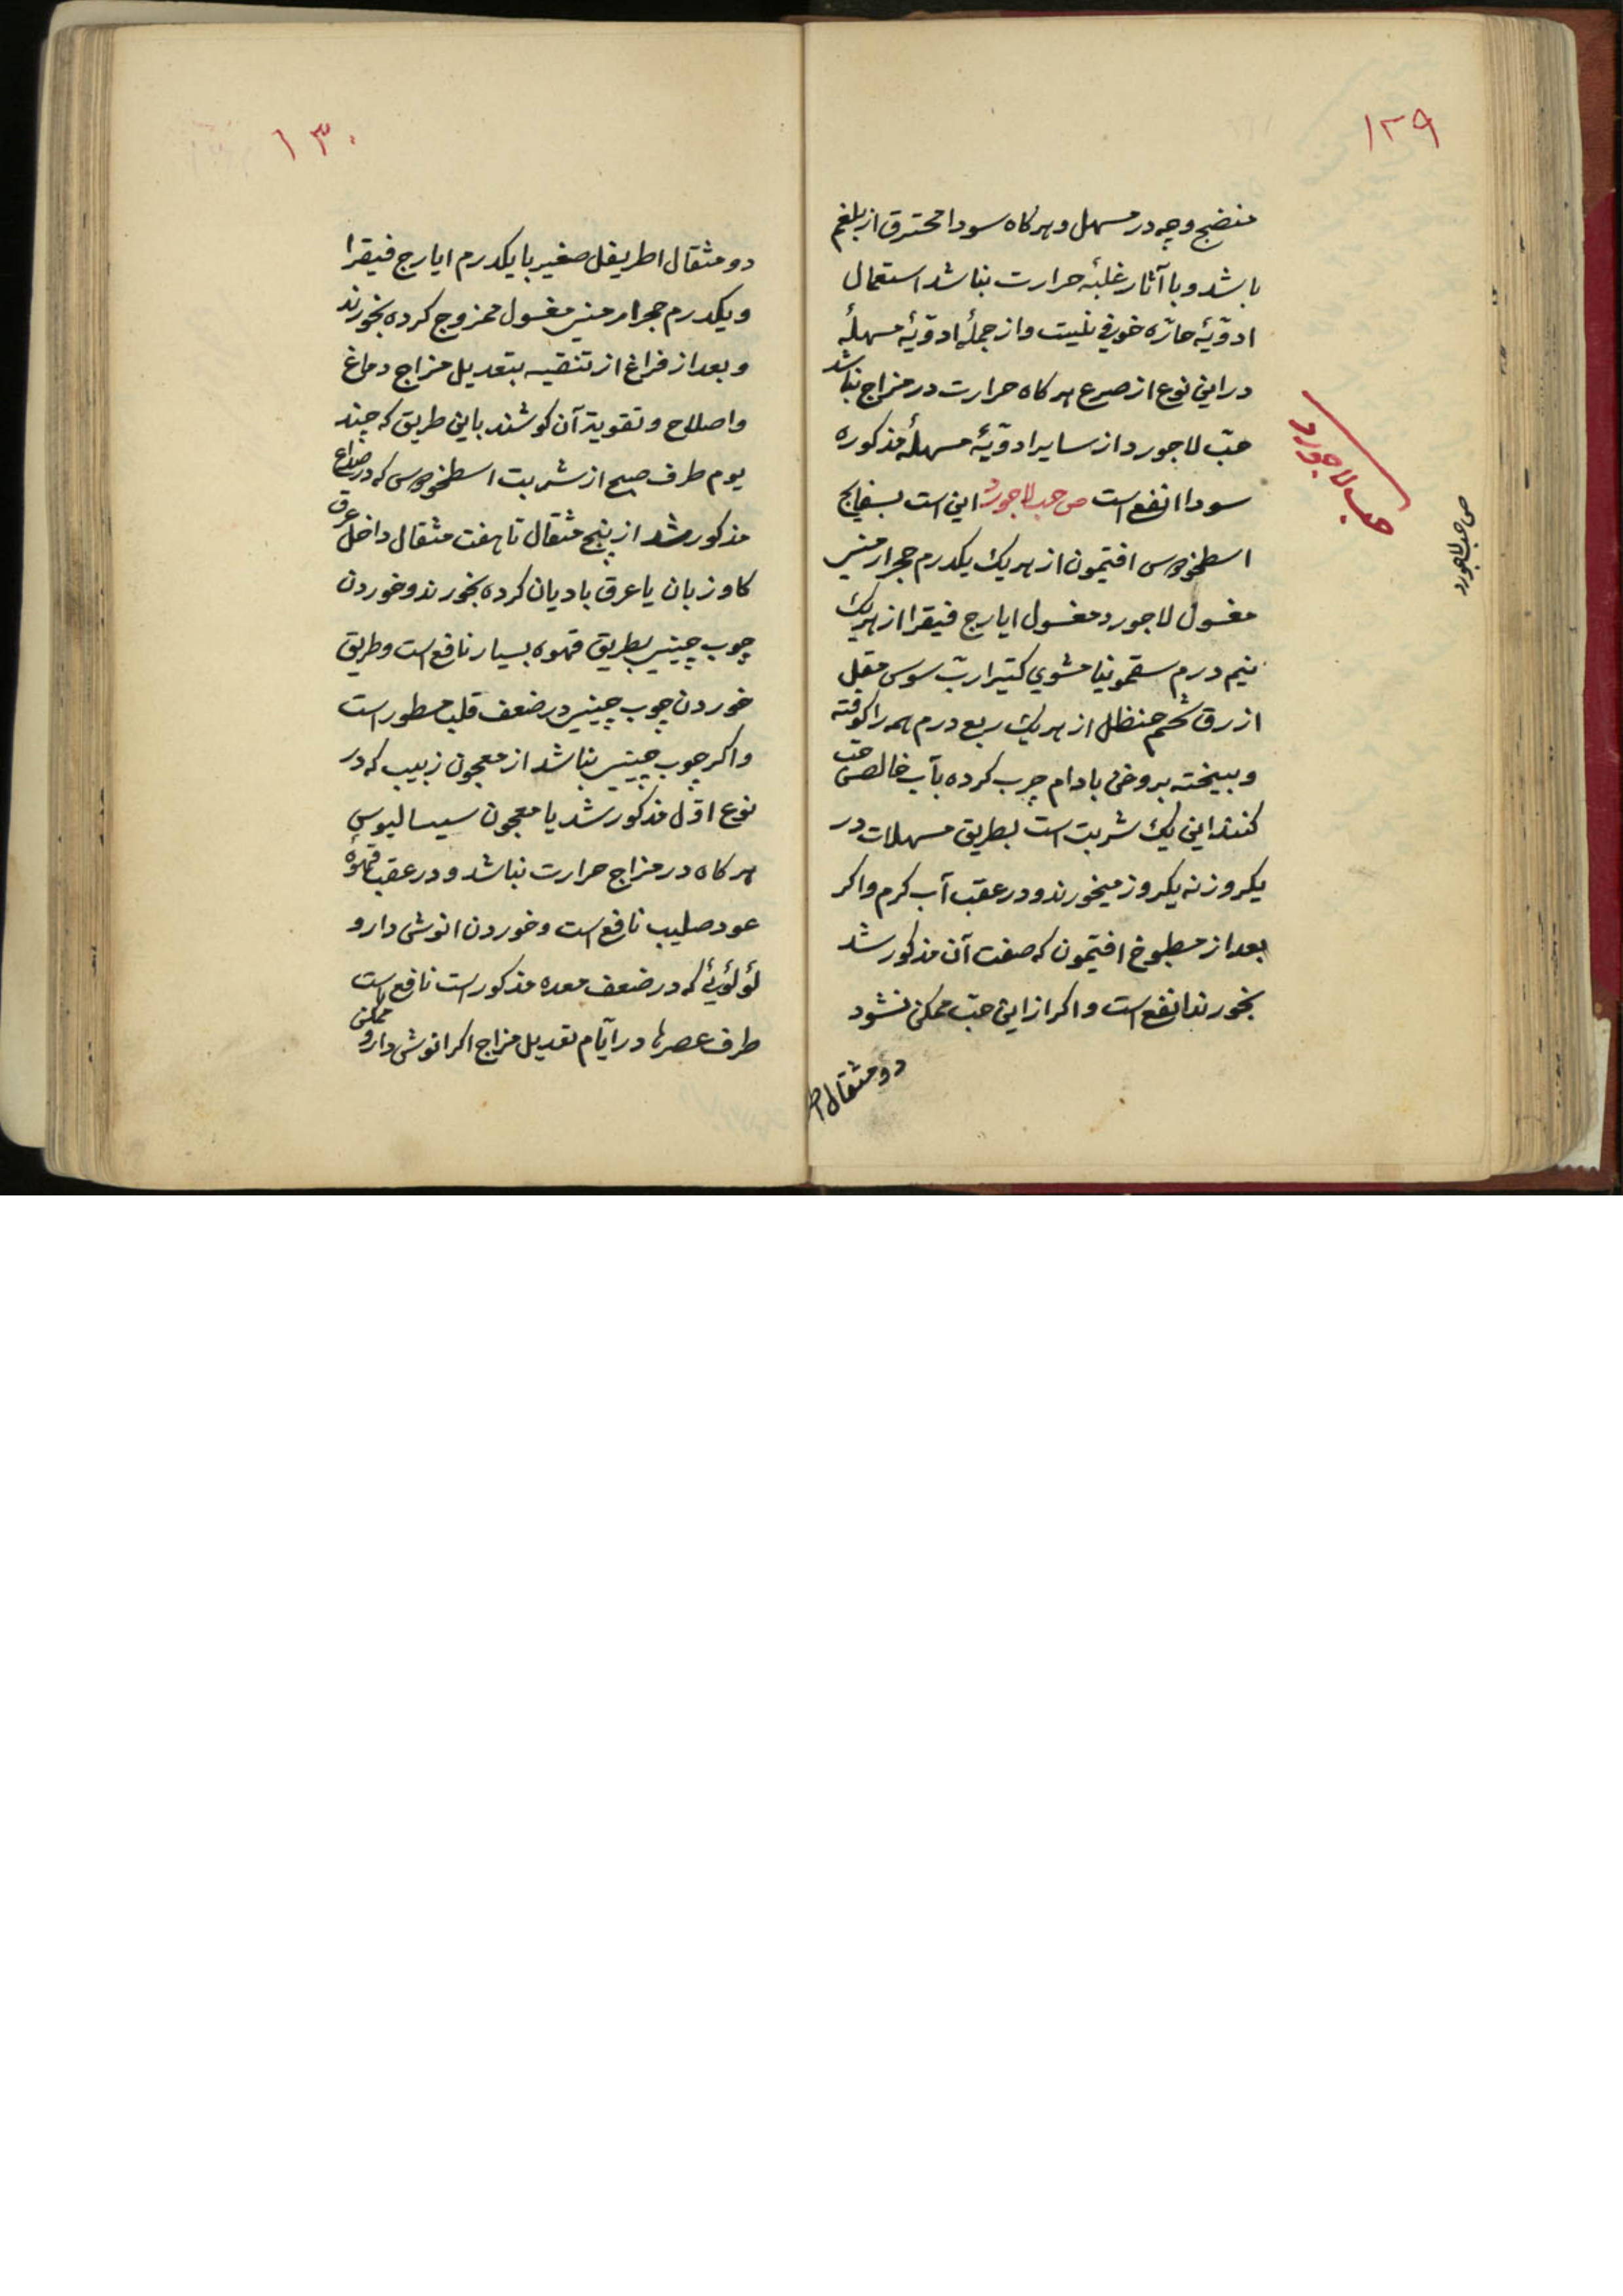 ۱۲۹
منضج وچه در مسهل و هرکاه سودا محترق از بلغم
باشد و با آثار غلبهٔ حرارت نباشد استعمال
ادویّهٔ حارّه خوفی نلیت و از جملهٔ ادویّهٔ مسهلهٔ
در این نوع از صرع هرکاه حرارت در مزاج نباشد
حبّ لاجورد از سایر ادویّهٔ مسهلهٔ مذکوره
سودا انفع است ص حب لاجورد این است بسفایج
اسطخودوس افتیمون از هریك یکدرم حجر ارمنی
مغسول لاجورد مغسول ایارج فیقرا از هریك
نیم درم سقمونیا مشوی کتیرا ربّ سوس مقل
ازرق شحم حنظل از هریك ربع درم همه را کوفته
و بیخته بروغن بادام چرب کرده بآب خالص حبّ
کنند این یك شربت است بطریق مسهلات در
یکروز نه یکروز میخورند و در عقب آب کرم و اکر
بعد از مطبوخ افتیمون که صفت آن مذکور شد
بخورند انفع است و اکر از این حبّ ممکن نشود
دو مثقال اط
حب لاجورد
ص حب لاجورد
۱۳۰
دو مثقال اطریفل صغیر با یکدرم ایارج فیقرا
و یکدرم حجر ارمنی مغسول ممزوج کرده بخورند
و بعد از فراغ از تنقیه بتعدیل مزاج دماغ
و اصلاح و تقویة آن کوشند باین طریق که چند
یوم طرف صبح از شربت اسطخودوس که در صداع
مذکور شد از پنج مثقال تا هفت مثقال داخل عرق
کاوزبان یا عرق بادیان کرده بخورند و خوردن
چوب چینی بطریق قهوه بسیار نافع است و طریق
خوردن چوب چینی در ضعف قلب مسطور است
و اکر چوب چینی نباشد از معجون زبیب که در
نوع اوّل مذکور شد یا معجون سیسالیوس
هرکاه در مزاج حرارت نباشد و در عقب قهوهٔ
عود صلیب نافع است و خوردن انوش دارو
لؤلؤیٔ که در ضعف معده مذکور است نافع است
طرف عصرها در ایّام تعدیل مزاج اکر انوش دارو ممکن